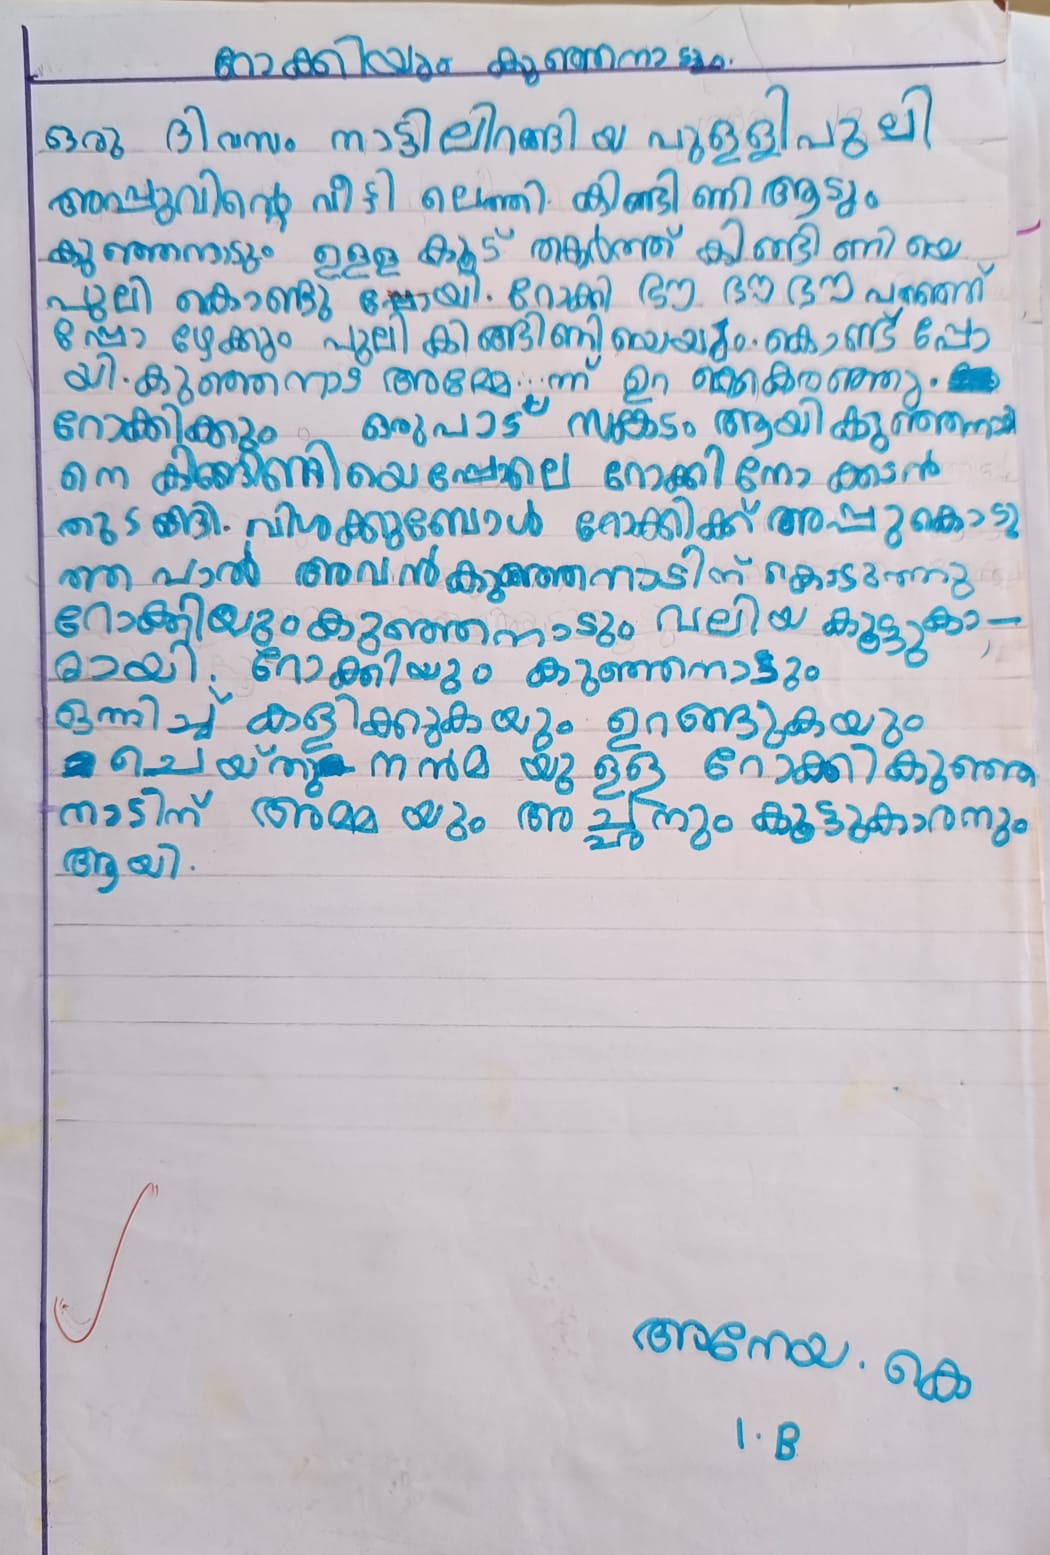 റോക്കിയും കുഞ്ഞനാടും.
ഒരു ദിവസം നാട്ടിലിറങ്ങിയ പുള്ളിപുലി
അപ്പുവിന്റെ വീട്ടി ലെത്തി. കിങ്ങിണി ആടും
കുഞ്ഞനാടും ഉള്ള കൂട് തകർത്ത് കിങ്ങിണിയെ
പുലി കൊണ്ടു പ്പോയി. റോക്കി ഭൗ ഭൗ ഭൗ പറഞ്ഞ്
പ്പോ ഴേക്കും പുലി കിങ്ങിണി കൊണ്ട് പ്പോ
യി. കുഞ്ഞനാട് അമ്മേ...ന്ന് ഉറ ക്കെകരഞ്ഞു.
റോക്കിക്കും ഒരുപാട് സങ്കടം ആയി കുഞ്ഞനാടി
നെ കിങ്ങിണിയെപ്പോലെ റോക്കി നോ ക്കാൻ
തുടങ്ങി. വിശക്കുമ്പോൾ റോക്കിക്ക് അപ്പു കൊടു
ത്ത പാൽ അവൻ കുഞ്ഞനാടിന് കൊടുത്തു
റോക്കിയും കുഞ്ഞനാടും വലിയ കൂട്ടുകാ-
രായി. റോക്കിയും കുഞ്ഞനാടും
ഒന്നിച്ച് കളിക്കുകയും ഉറങ്ങുകയും
ചെയ്തു നൻമ യു ള്ള റോക്കി കുഞ്ഞ
നാടിന് അമ്മ യും അ ച്ഛനും കൂട്ടുകാരനും
ആയി.
അനേയ. കെ
1. B